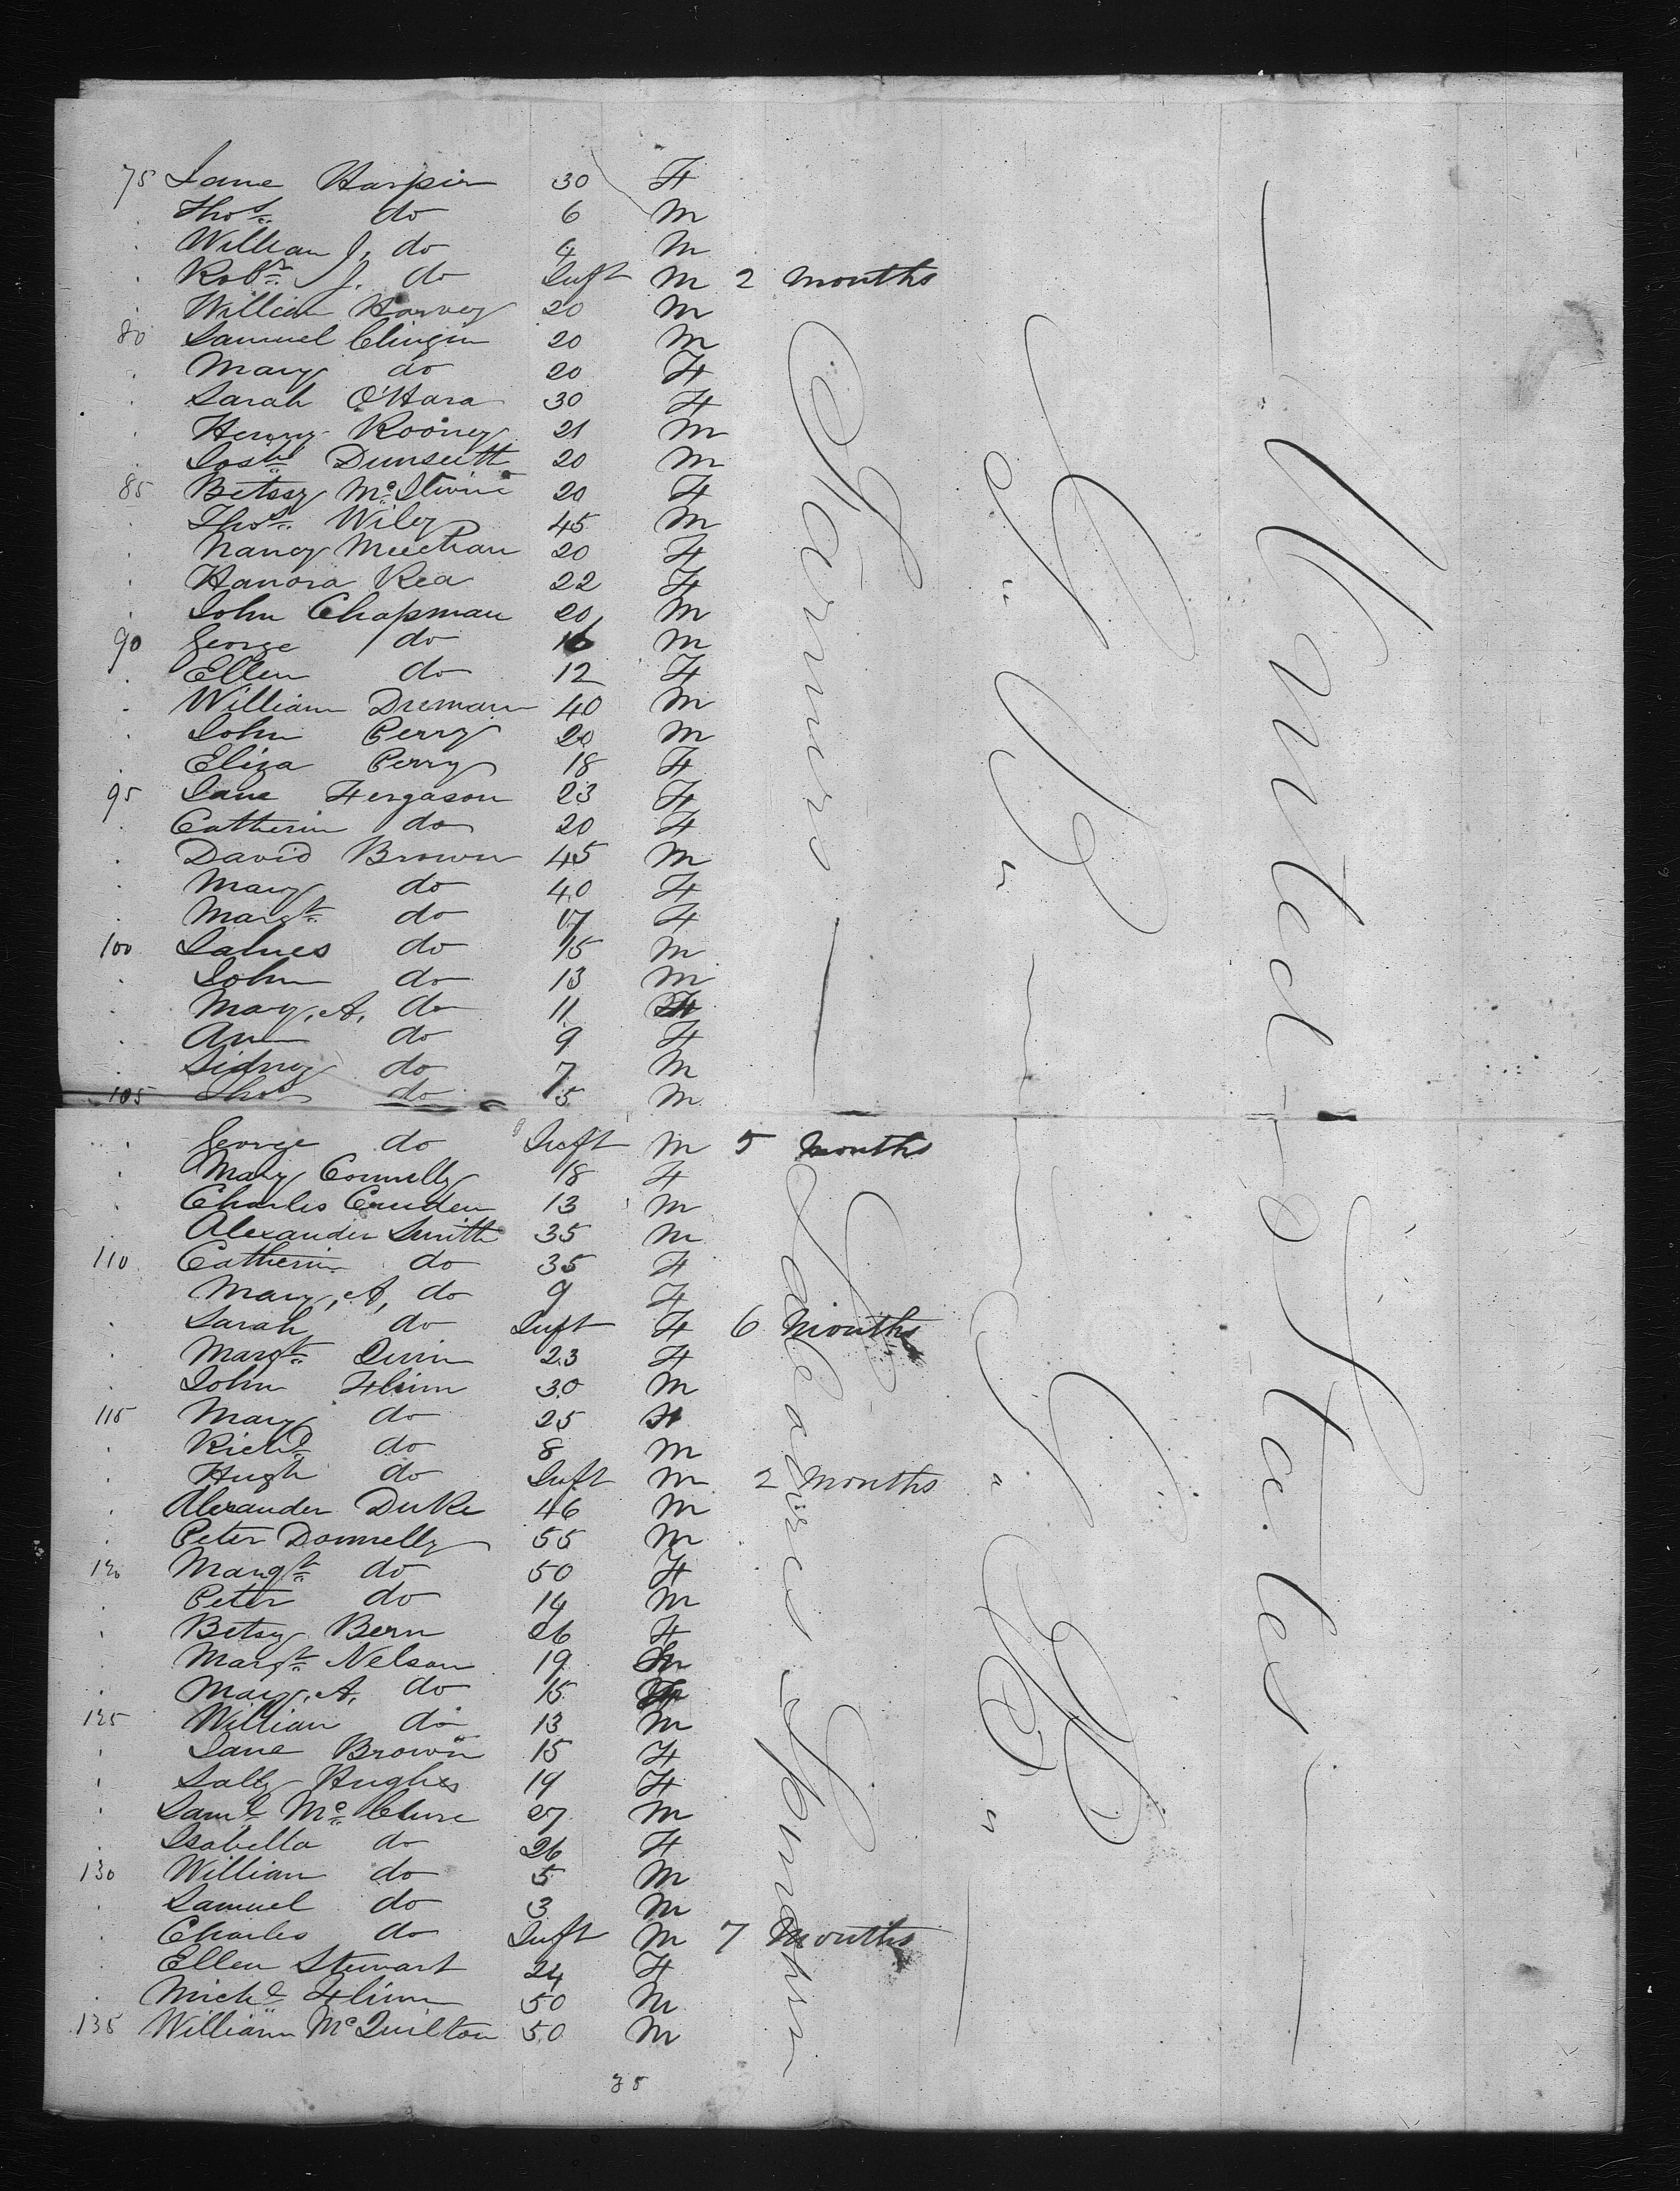 75 Jane Harpin 30 F
Thos do 6 M
William J. do 4 M
Robt J. do Inft M 2 months
William Harvey 20 M
80 Samuel Clingin 20 M
Mary do 20 F
Sarah O'Hara 30 F
Henry Rooney 21 M
Josh Dunseith 20 M
85 Betssy McStivine 20 F
Thos Wiley 45 M
Nancy Meechan 20 F
Hanora Rea 22 F
John Chapman 20 M
90 George do 16 M
Ellen do 12 F
William Dreman 40 M
John Perry 20 M
Eliza Perry 18 F
95 Jane Fergason 23 F
Catherin do 20 F
David Brown 45 M
Mary do 40 F
Margt do 17 F
100 James do 15 M
John do 13 M
Mary, A, do 11 F
Ann do 9 F
Sidney do 7 M
105 Thos do 5 M
George do Inft M 5 months
Mary Connelly 18 F
Charles Cruden 13 M
Alexander Smith 35 M
110 Catherin do 35 F
Mary, A, do 9 F
Sarah do Inft F 6 Months
Margt Quin 23 F
John Flinn 30 M
115 Mary do 25 F
Richd do 8 M
Hugh do Inft M 2 months
Alexander Duke 46 M
Peter Donnelly 55 M
120 Margt do 50 F
Peter do 14 M
Betsy Bern 26 F
Margt Nelson 19
Mary, A, do 15
125 William do 13 M
Jane Brown 15 F
Sally Hughes 19 F
Saml McClure 27 M
Isabella do 26 F
130 William do 5 M
Samuel do 3 M
Charles do Inft M 7 Months
Ellen Stewart 24 F
Michl Flinn 50 M
135 William McQuilton 50 M
Farmers — Laboures Spinsters
United States